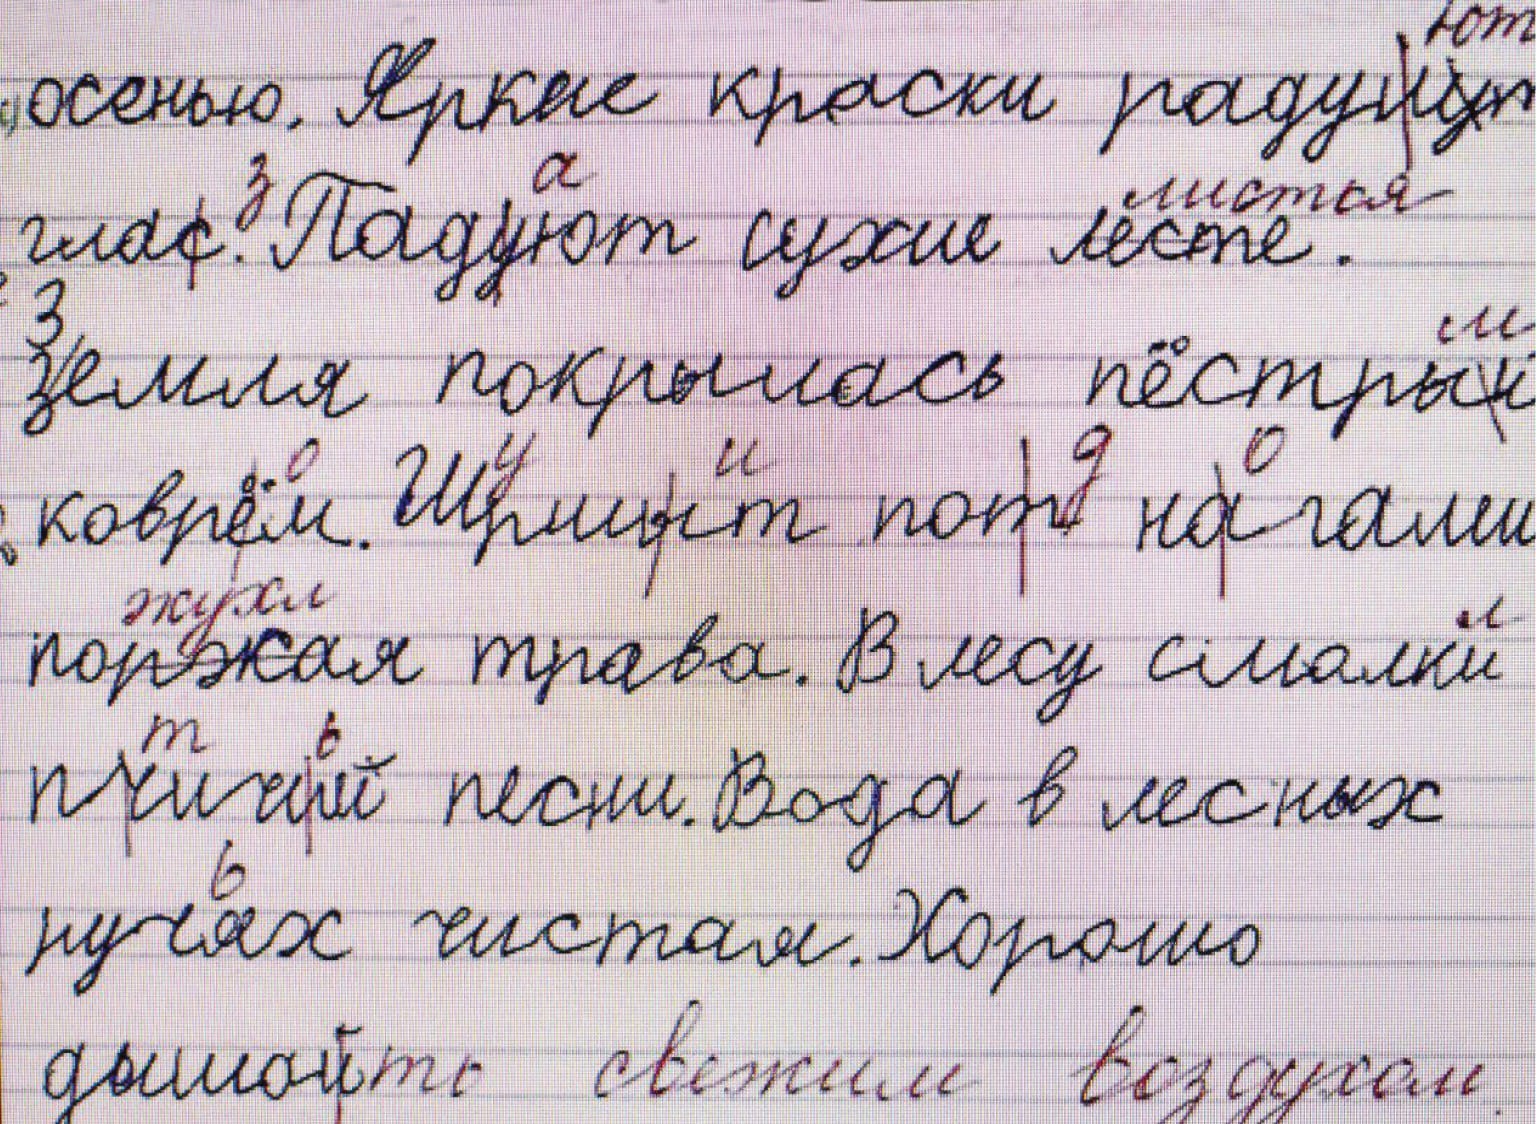 осенью. Яркие краски радуют
глаз. Падают сухие листья.
Земля покрылась пёстрым
ковром. Шумит под ногами
пожухлая трава. В лесу смолкли
птичьи песни. Вода в лесных
ручьях чистая. Хорошо
дышать свежим воздухом.